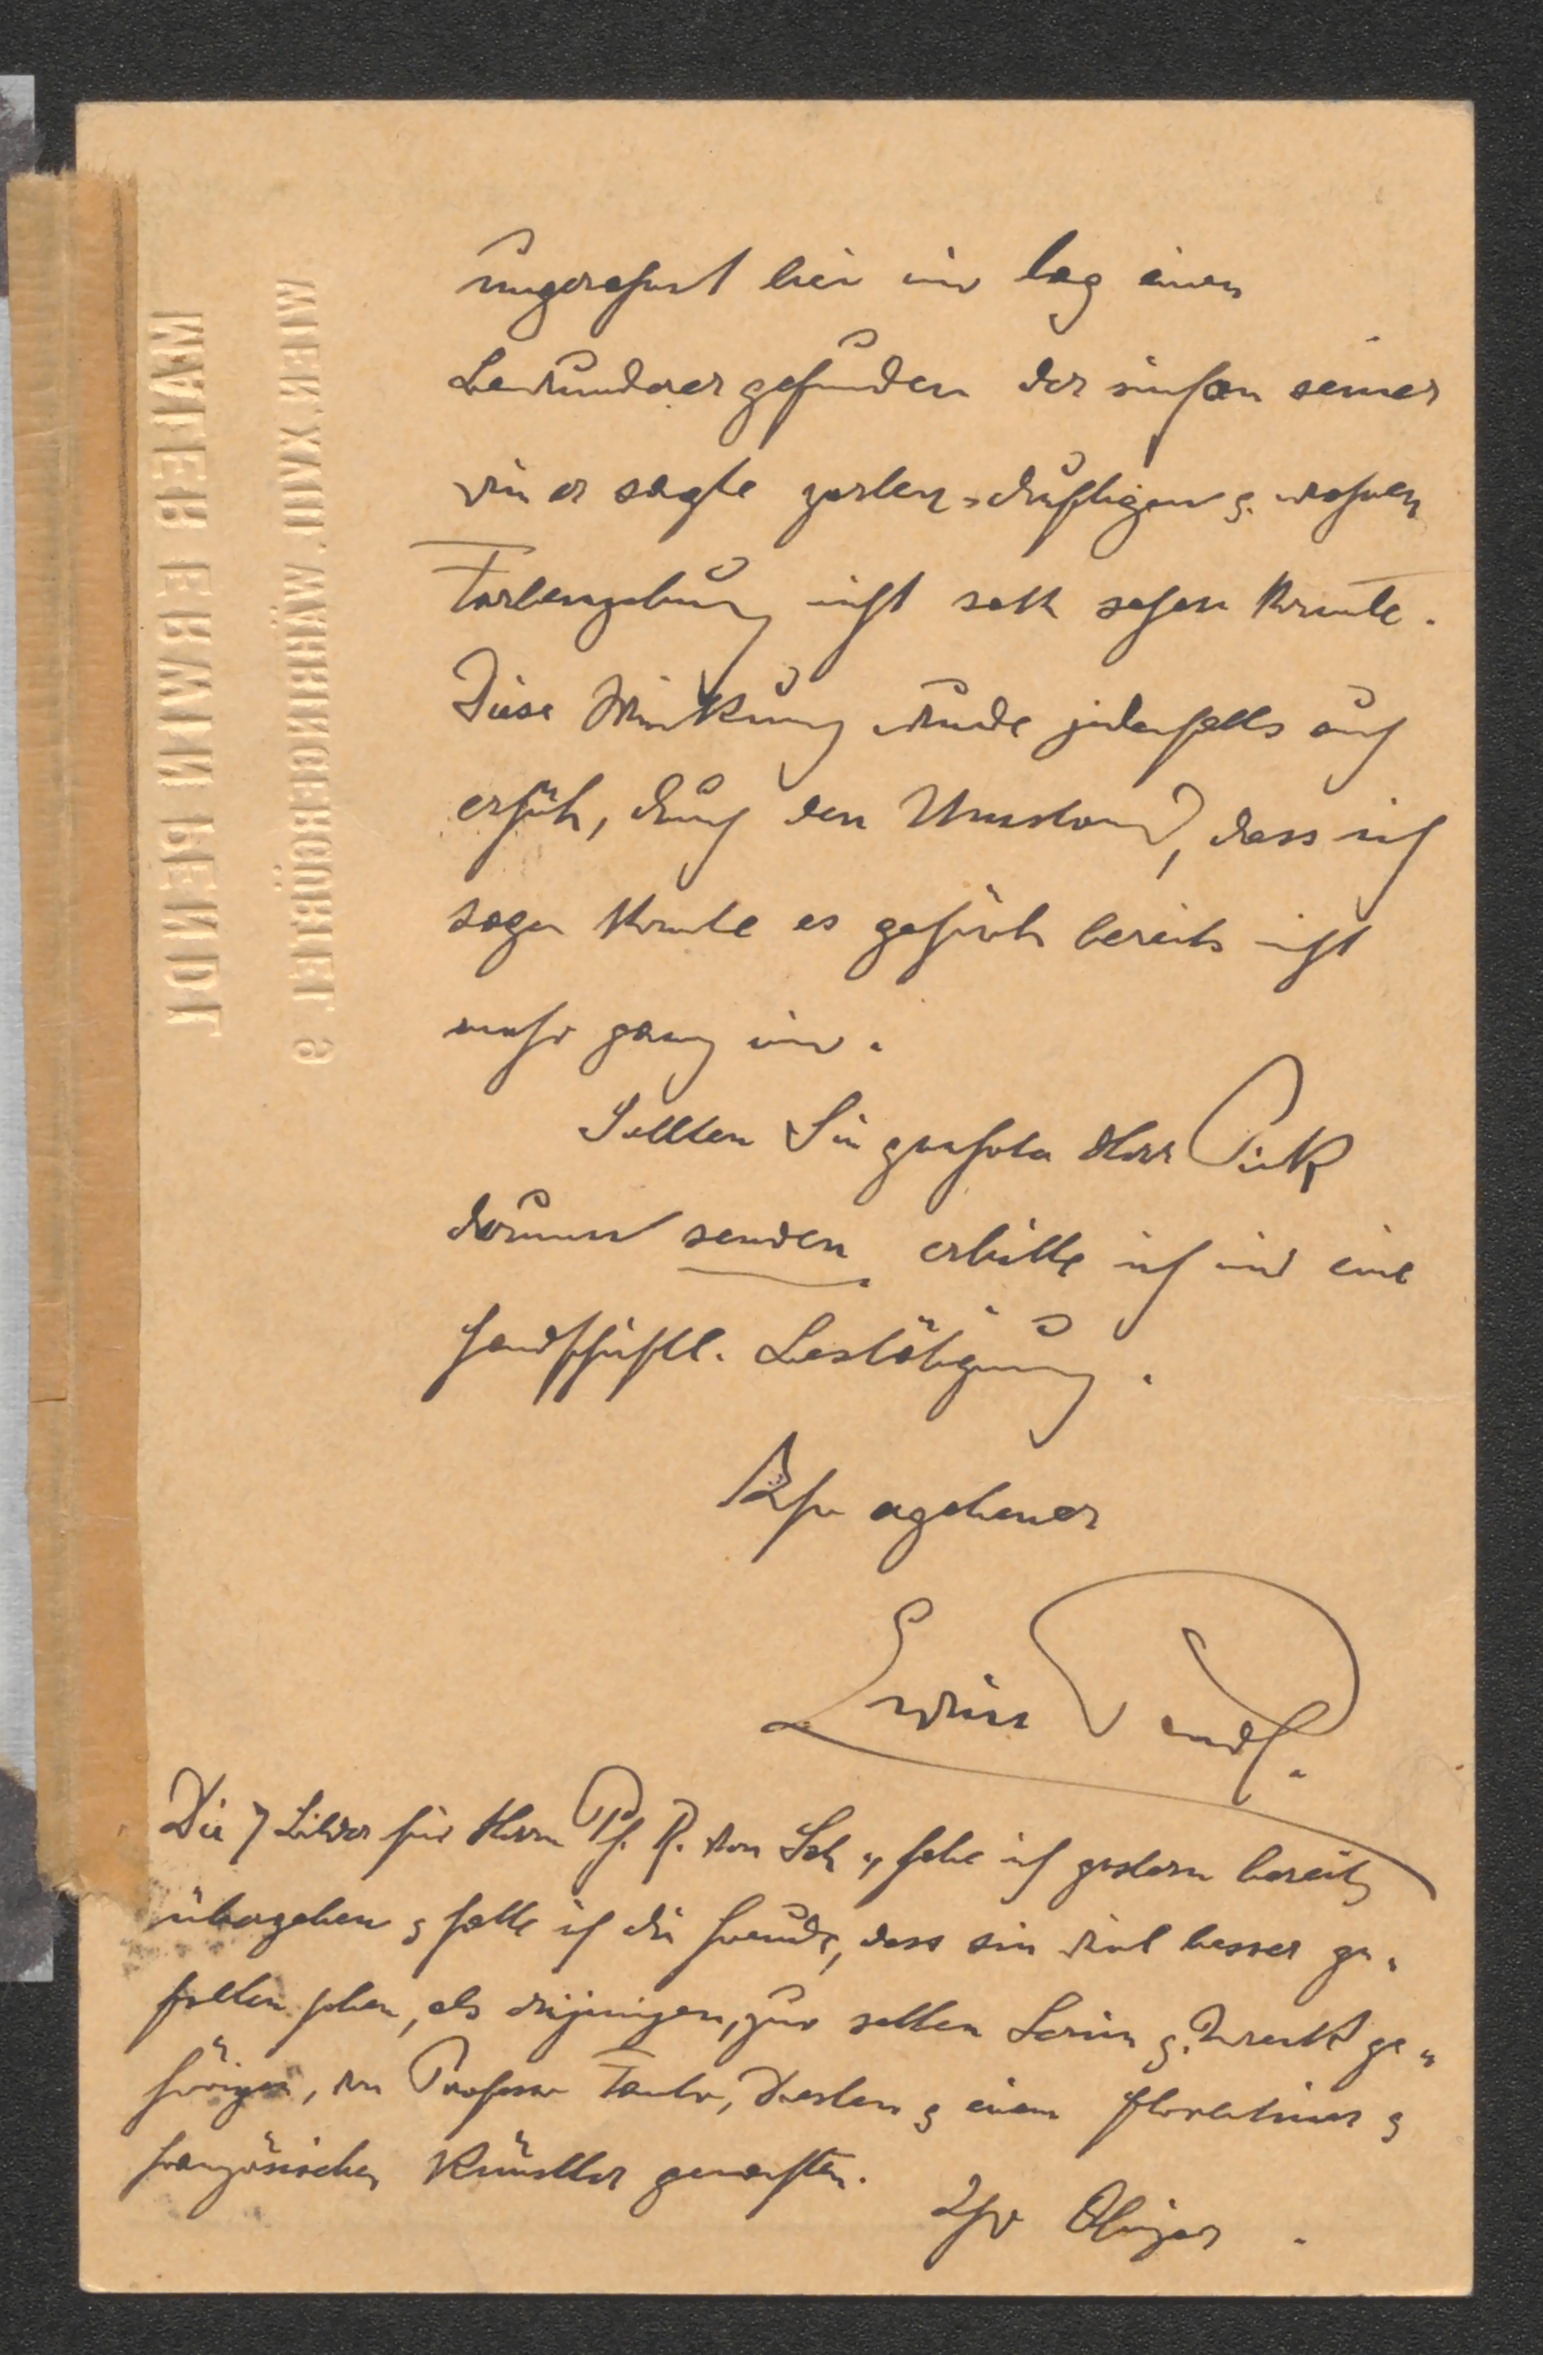 MALER ERWIN PENDL
WIEN, XVIII., WÄHRINGERGÜRTEL 9
ungerahmt bei mir lag einen
Bewunderer gefunden der sich an seiner
wie er sagte zarten, duftigen & wahren
Farbengebung nicht satt sehen konnte.
Diese Wirkung wurde jedenfalls auch
erhöht, durch den Umstand, dass ich
sagen konnte es gehört bereits nicht
mehr ganz mir.
Sollten Sie geehrter Herr Pick
darum senden erbitte ich mir eine
handschriftl. Bestätigung.
Ihr ergebener
Erwin Pendl.
Die 7 Bilder für Herrn von habe ich gestern bereits
übergeben & hatte ich die Freude, dass sie viel besser ge„
fallen haben, als diejenigen, zur selben Serie & Zweck ge„
hörigen, von Professor Dresden & einem florentiner &
französischen Künstler gemachten.
Ihr Obiger.